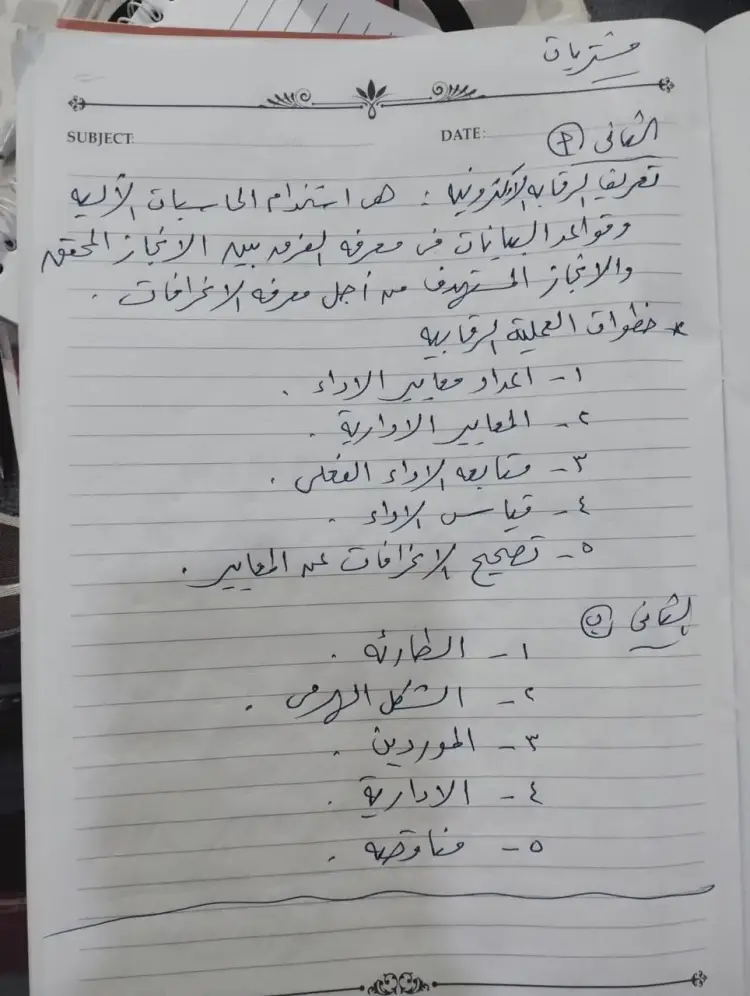 مشتريات
SUBJECT:
DATE:
الثانى (P)
تعريف الرقابه الالكترونيه : هى استخدام الحاسبات الأليه
وقواعد البيانات فى معرفه الفرق بين الانجاز المحقق
والانجاز المستهدف من أجل معرفه الانحرافات .
* خطوات العملية الرقابيه
١- اعداد معايير الاداء .
٢- المعايير الادارية .
٣- متابعه الاداء الفعلى .
٤- قياس الاداء .
٥- تصحيح الانحرافات عن المعايير .
الثانى (ب)
١- الطارئه .
٢- الشكل الهرمى .
٣- الموردين .
٤- الادارية .
٥- مناقصه .